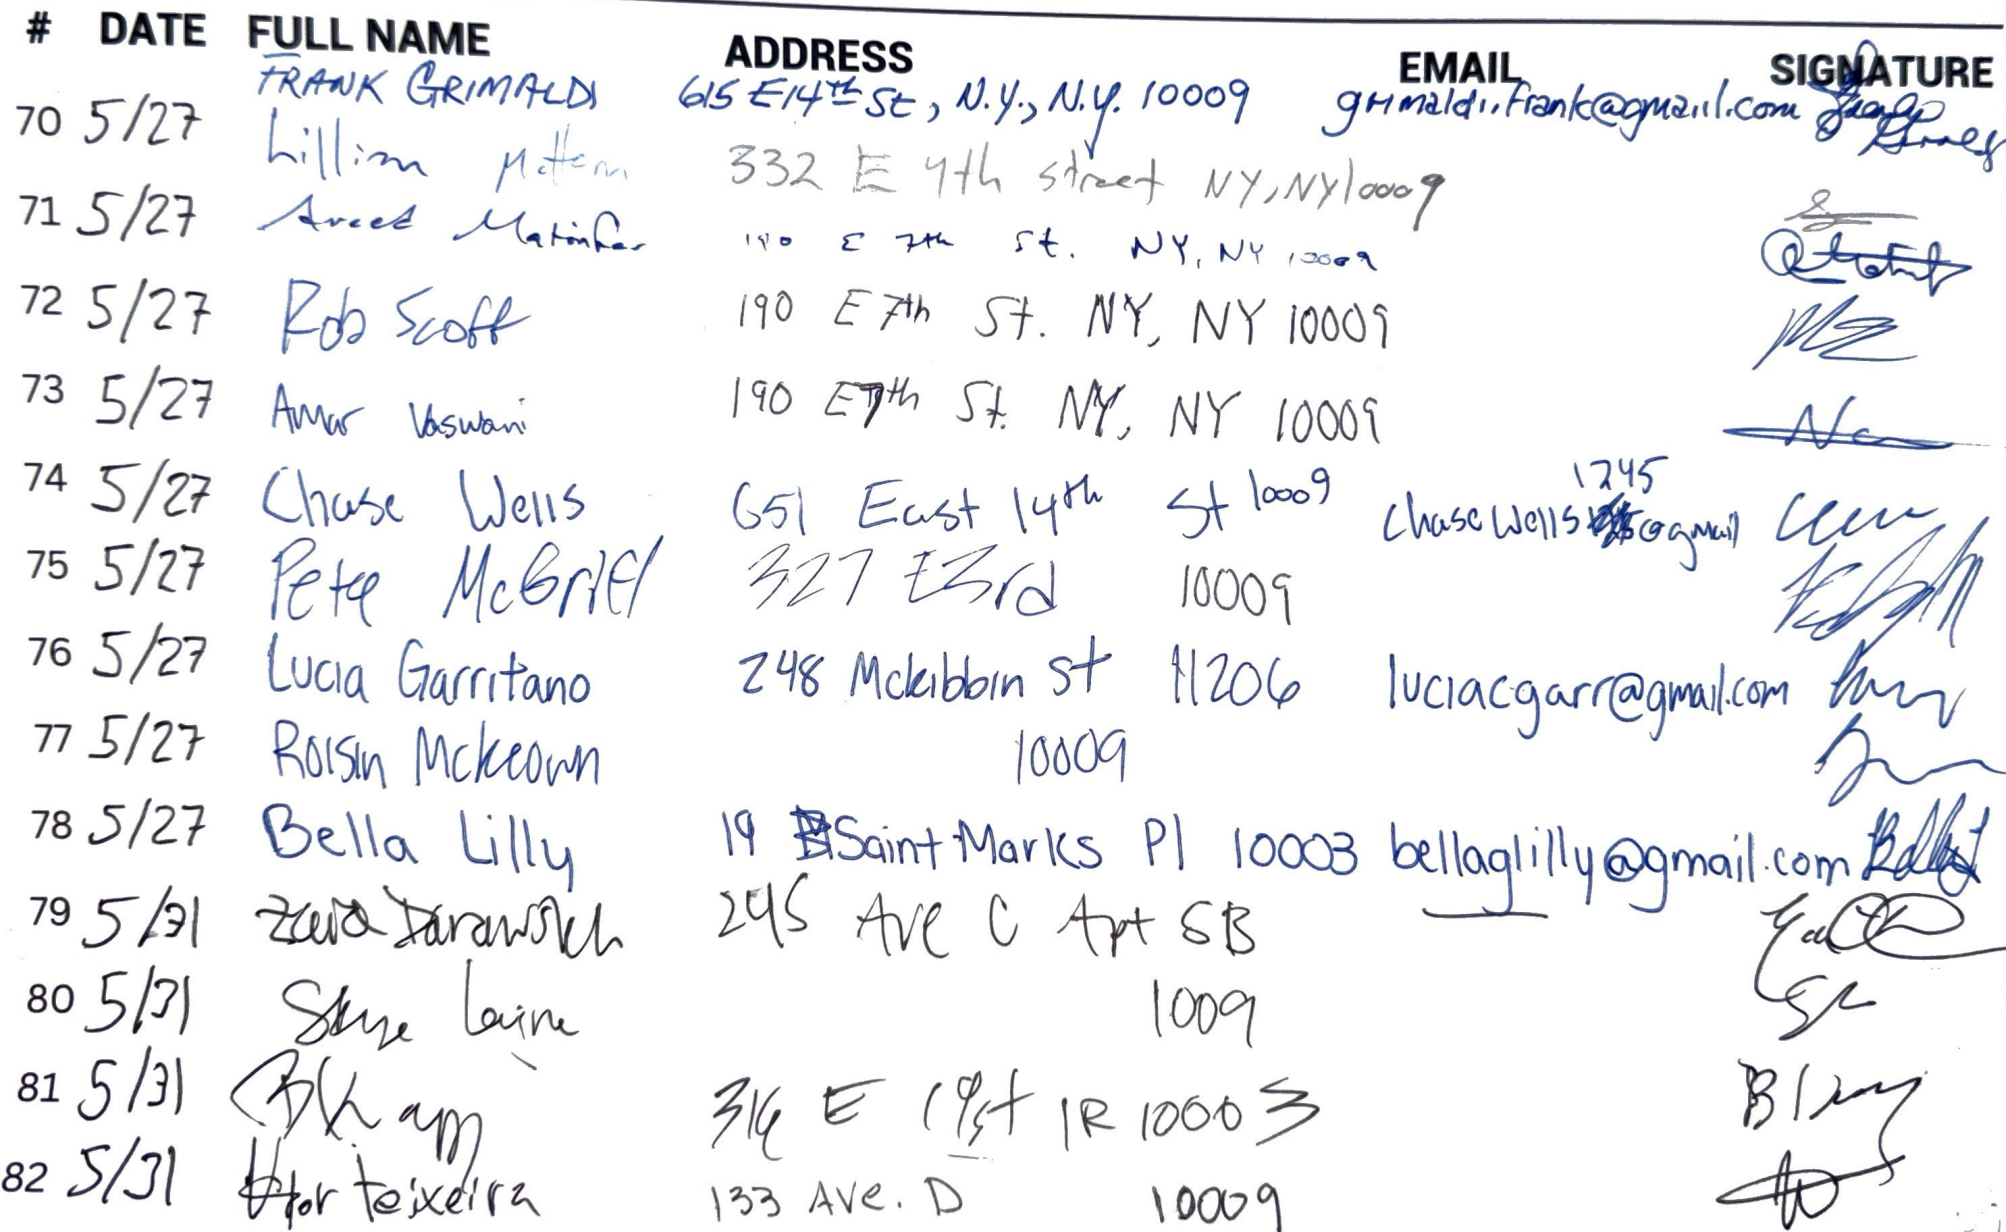 # DATE FULL NAME ADDRESS EMAIL SIGNATURE
FRANK GRIMALDI 615 E 14th St, N.Y., N.Y. 10009 grimaldi.frank@gmail.com
70 5/27 Lillian 332 E 4th street NY, NY 10009
71 5/27 Matinfar 190 E 7th St. NY, NY 10009
72 5/27 Rob Scott 190 E 7th St. NY, NY 10009
73 5/27 Amar Vaswani 190 E 7th St. NY, NY 10009
74 5/27 Chase Wells 651 East 14th St 10009 ChaseWells1245@gmail
75 5/27 Pete McGriff 327 E 3rd 10009
76 5/27 Lucia Garritano 248 Mckibbin st 11206 luciacgarr@gmail.com
77 5/27 Roisin Mckeown 10009
78 5/27 Bella Lilly 19 Saint Marks Pl 10003 bellaglilly@gmail.com
79 5/31 Zaid 245 Ave C Apt 5B
80 5/31 Skye Laine 1009
81 5/31 B Knapp E 1st 1R 10003
82 5/31 Teixeira 133 Ave. D 10009